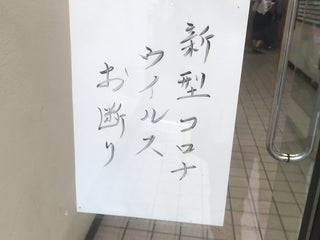 新型コロナ
ウイルス
お断り